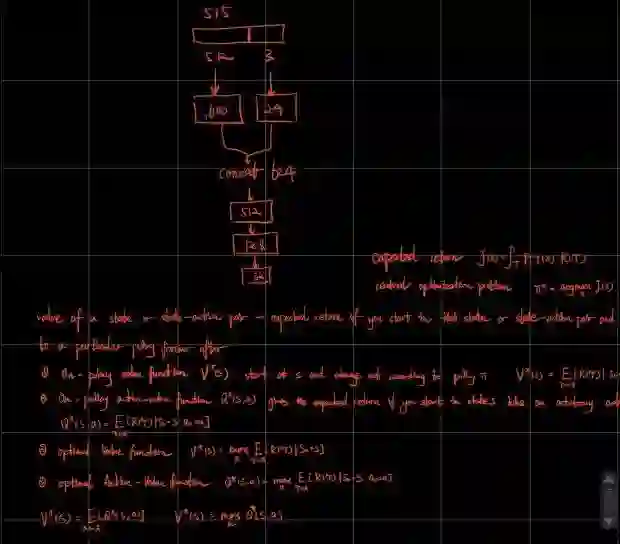 515
512 3
600 24
concat 624
512
128
expected return J(π) = ∫ P(τ|π) R(τ)
central optimization problem π* = argmax J(π)
value of a state or state-action pair – expected return if you start in that state or state-action pair and
to a particular policy forever after
① On-policy value function V^π(s) start at s and always act according to policy π V^π(s) = E[R(τ)|S
② On-policy action-value function Q^π(s,a) gives the expected return if you start in state s take an arbitrary
Q^π(s,a) = E[R(τ)|S₀=S a₀=a]
③ optimal value function V*(s) = max E[R(τ)|S₀=S]
④ optimal Action-Value function Q*(s,a) = max E[R(τ)|S₀=S a₀=a]
V^π(s) = E[Q^π(s,a)] V*(s) = max Q*(s,a)